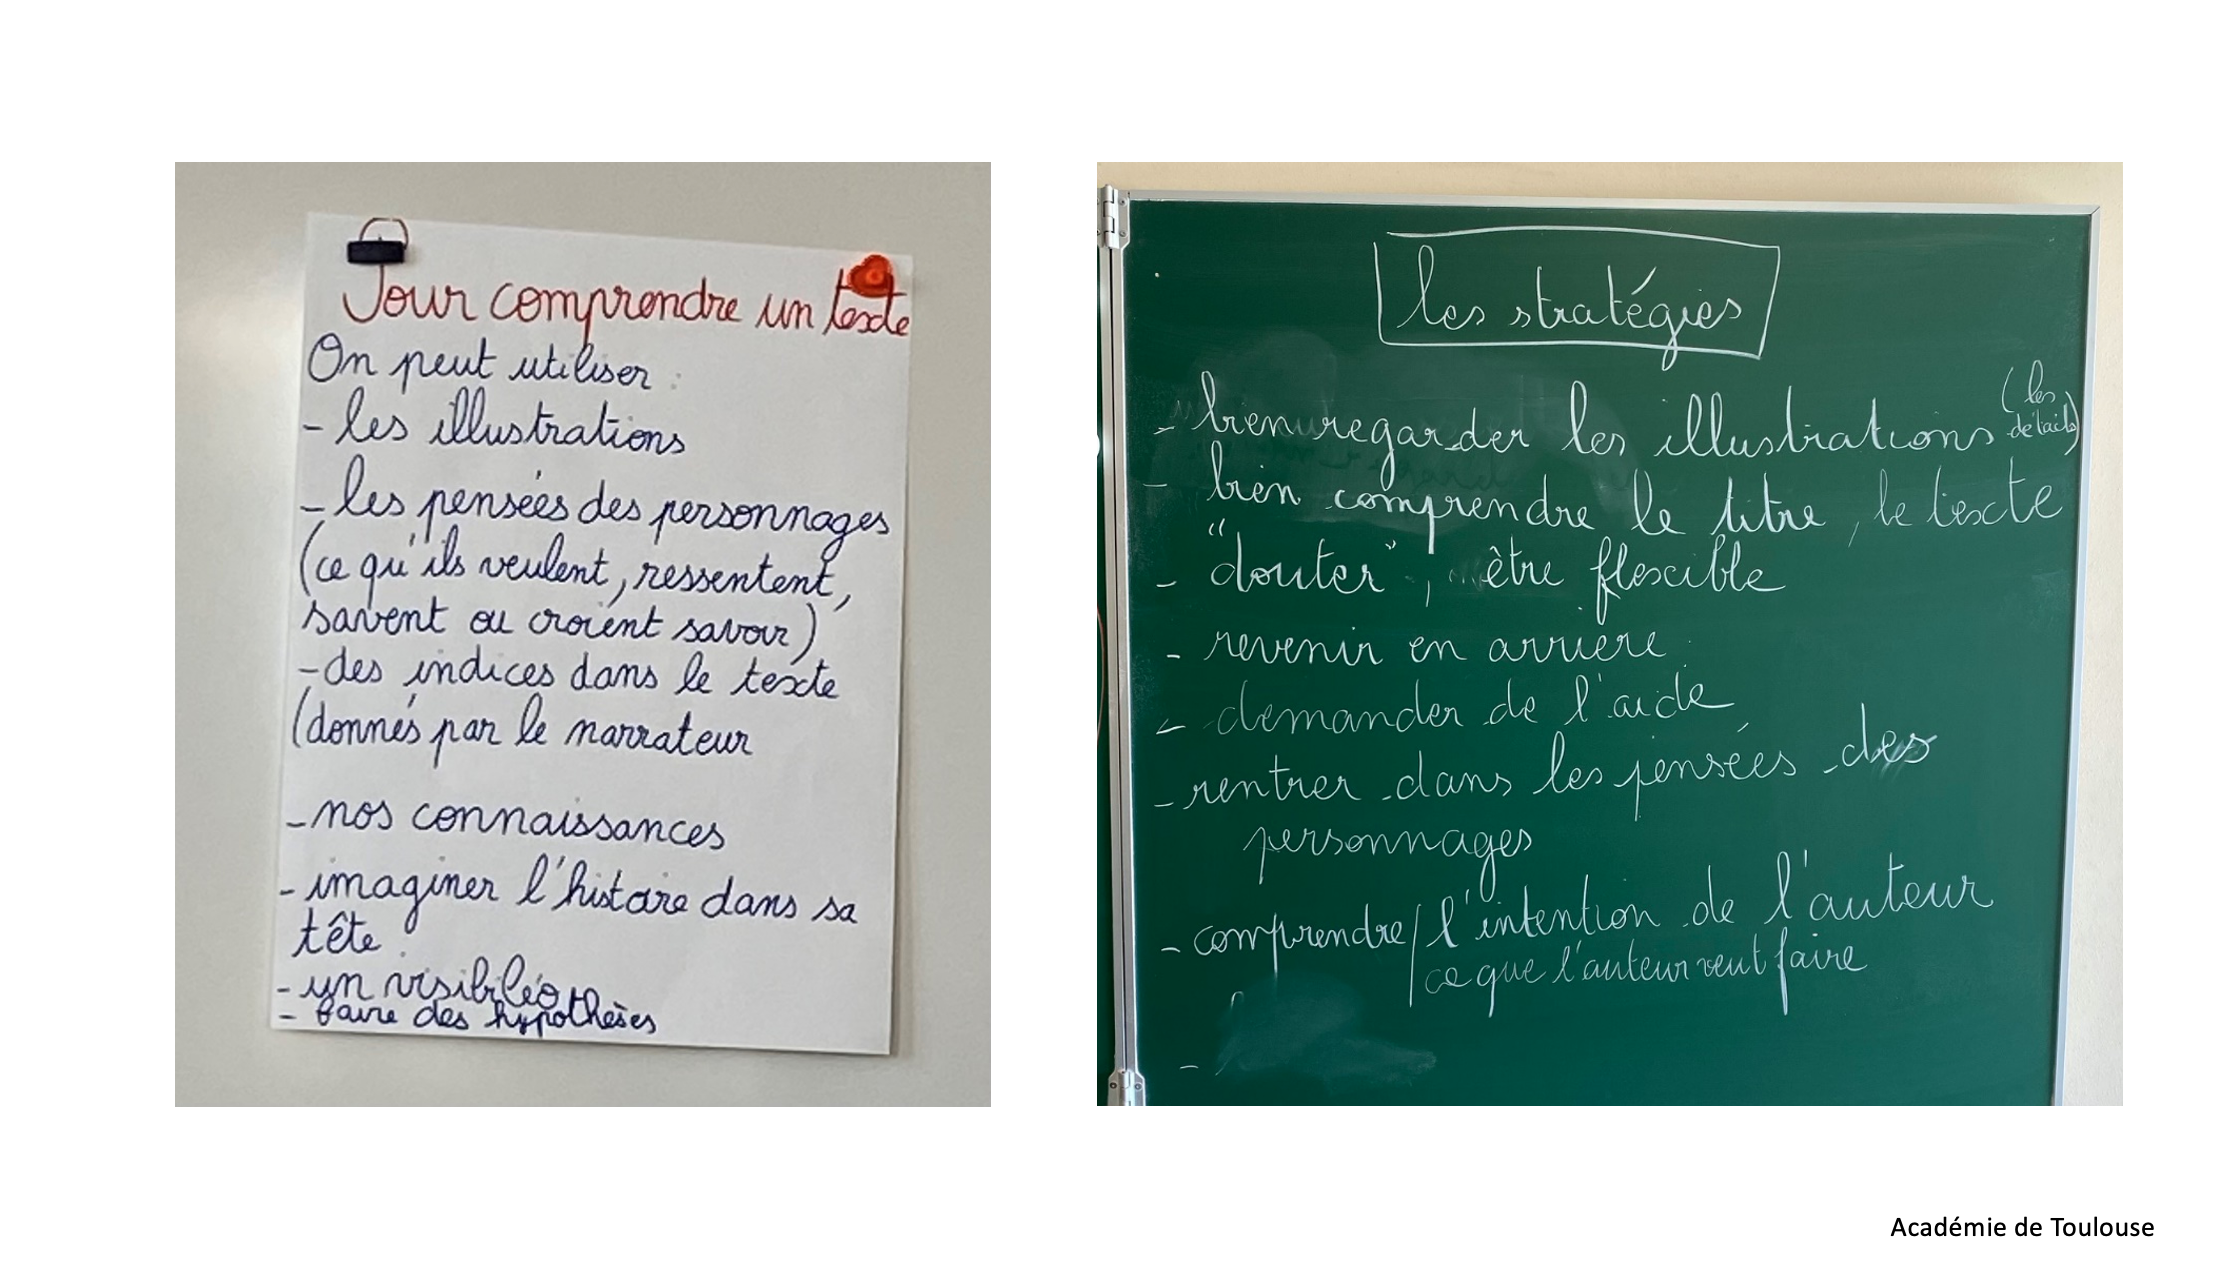 Pour comprendre un texte
On peut utiliser :
- les illustrations
- les pensées des personnages
(ce qu'ils veulent, ressentent,
savent ou croient savoir)
- des indices dans le texte
(donnés par le narrateur
- nos connaissances
- imaginer l'histoire dans sa
tête
- un visibiléo
- faire des hypothèses
les stratégies
- bien regarder les illustrations (les
détails)
- bien comprendre le titre, le texte
- "douter", être flexible
- revenir en arrière
- demander de l'aide
- rentrer dans les pensées des
personnages
- comprendre / l'intention de l'auteur
ce que l'auteur veut faire
-
Académie de Toulouse